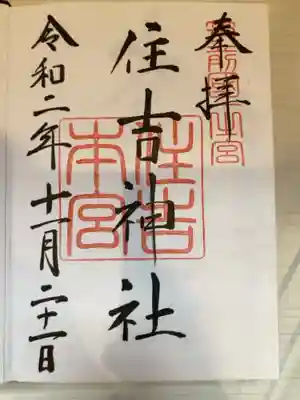 奉拝
住吉神社
住吉
本宮
令和二年十一月二十一日